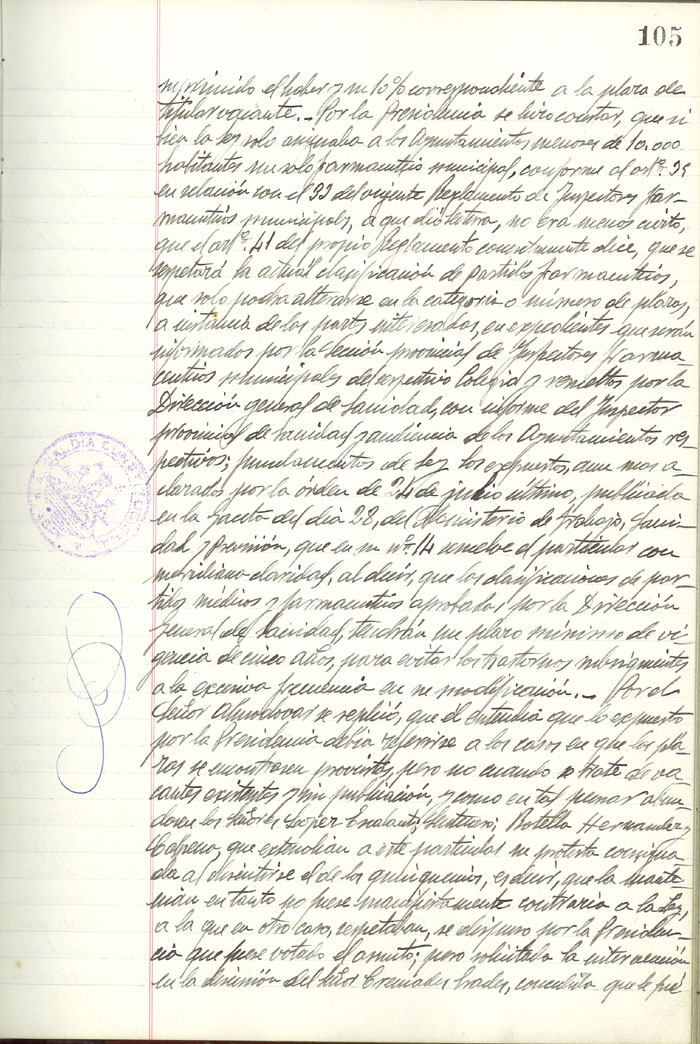 105
suprimido el haber y su 10% correspondiente a la plaza de
titular vacante.- Por la Presidencia se hizo constar, que si
bien la Ley solo asignaba a los Ayuntamientos menores de 10.000
habitantes un solo farmacéutico municipal, conforme al artº. 39
en relación con el 33 del vigente Reglamento de Inspectores Far-
macéuticos municipales, a que dió lectura, no era menos cierto,
que el artº. 41 del propio Reglamento concretamente dice, que se
respetará la actual clasificación de partidos farmacéuticos,
que solo podrá alterarse en la categoría o número de plazas,
a instancia de las partes interesadas, en expedientes que serán
informados por la Sección provincial de Inspectores Farma-
céuticos municipales del respectivo Colegio y resueltos por la
Dirección general de Sanidad, con informe del Inspector
provincial de sanidad y audiencia de los Ayuntamientos res-
pectivos; fundamentos de Ley los expuestos, aun mas a-
clarados por la órden de 24 de junio último, publicada
en la gaceta del dia 28, del Ministerio de trabajo, Sani-
dad y Previsión, que en su nº. 14 resuelve el particular con
meridiana claridad, al decir, que las clasificaciones de par-
tidos médicos y farmacéuticos aprobadas por la Dirección
general de Sanidad, tendrán un plazo mínimo de vi-
gencia de cinco años, para evitar los trastornos subsiguientes
a la excesiva frecuencia en su modificación.- Por el
Señor Almodovar se replicó, que él entendia que lo expuesto
por la Presidencia debia referirse a los casos en que las pla-
zas se encontrasen provistas, pero no cuando se trate de va-
cantes existentes y sin publicación, y como en tal pensar abun-
daran los Señores Lopez-Escalante, Botella Hernandez y
que extendian a este particular su protesta consigna-
da al discutirse el de los quinquenios, es decir, que la mante-
nian en tanto no fuese manifiestamente contraria a la Ley,
a la que en otro caso, respetaban, se dispuso por la Presiden-
cia que fuese votado el asunto; pero solicitada la intervención
en la discusión del Señor Cremades concedida que le fué